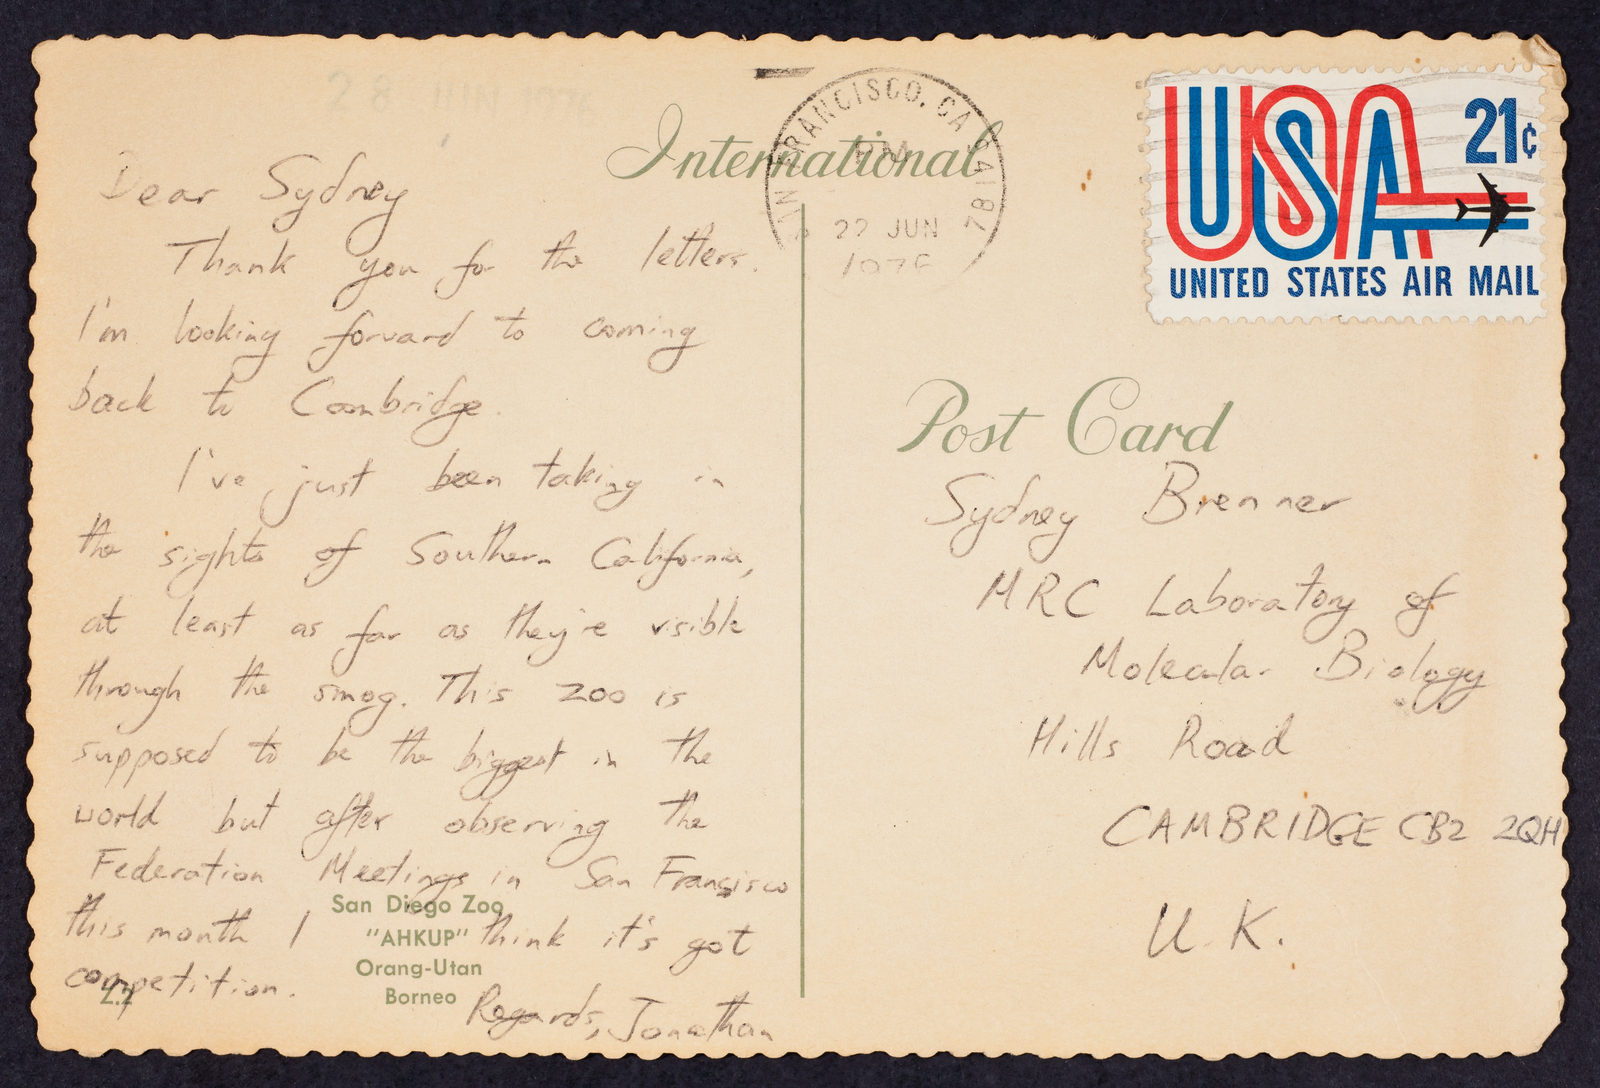 28 JUN 1976
International
SAN FRANCISCO, CA
PM
22 JUN
1976
USA
21¢
UNITED STATES AIR MAIL
Dear Sydney
Thank you for the letters.
I'm looking forward to coming
back to Cambridge.
I've just been taking in
the sights of Southern California,
at least as far as they're visible
through the smog. This zoo is
supposed to be the biggest in the
world but after observing the
Federation Meetings in San Francisco
this month I think it's got
competition.
Regards, Jonathan
San Diego Zoo
"AHKUP"
Orang-Utan
Borneo
Post Card
Sydney Brenner
MRC Laboratory of
Molecular Biology
Hills Road
CAMBRIDGE CB2 2QH
U.K.